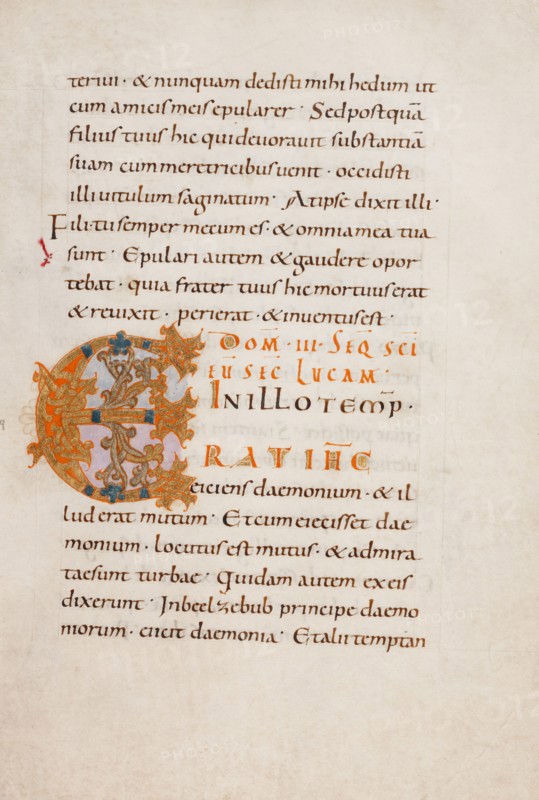 teriui · & nunquam dedisti mihi hedum ut
cum amicis meis epularer · Sed postquā
filius tuus hic qui deuorauit substantiā
suam cum meretricibus uenit · occidisti
illi uitulum saginatum · At ipse dixit illi ·
Fili · tu semper mecum es · & omnia mea tua
sunt · Epulari autem & gaudere opor
tebat · quia frater tuus hic mortuus erat
& reuixit · perierat · & inuentus est ·
DOM̄ · III · SEQ̄ SCĪ
EŪ SEC̄ LUCAM ·
IN ILLO TEMP̄ ·
ERAT IH̄C
eiciens daemonium · & il
lud erat mutum · Et cum eiecisset dae
monium · locutus est mutus · & admira
tae sunt turbae · Quidam autem ex eis
dixerunt · In beelzebub principe daemo
niorum · eicit daemonia · Et alii temptan
PHOTO12